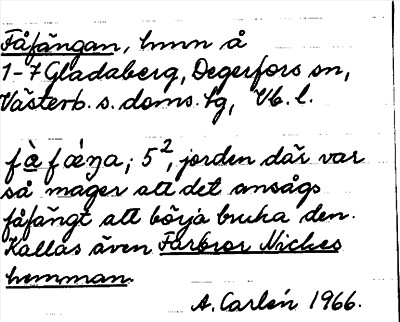 Fåfängan, hmn å
1-7 Gladaberg, Degerfors sn,
Västerb. s. doms. tg, Vb. l.
fà̱ fǽŋa; 5², jorden där var
så mager att det ansågs
fåfängt att börja bruka den.
Kallas även Farbror Nickes
hemman.
A. Carlén 1966.